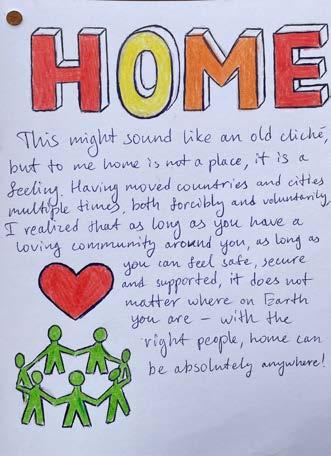 HOME
This might sound like an old cliché,
but to me home is not a place, it is a
feeling. Having moved countries and cities
multiple times, both forcibly and voluntarily,
I realized that as long as you have a
loving community around you, as long as
you can feel safe, secure
and supported, it does not
matter where on Earth
you are – with the
right people, home can
be absolutely anywhere!